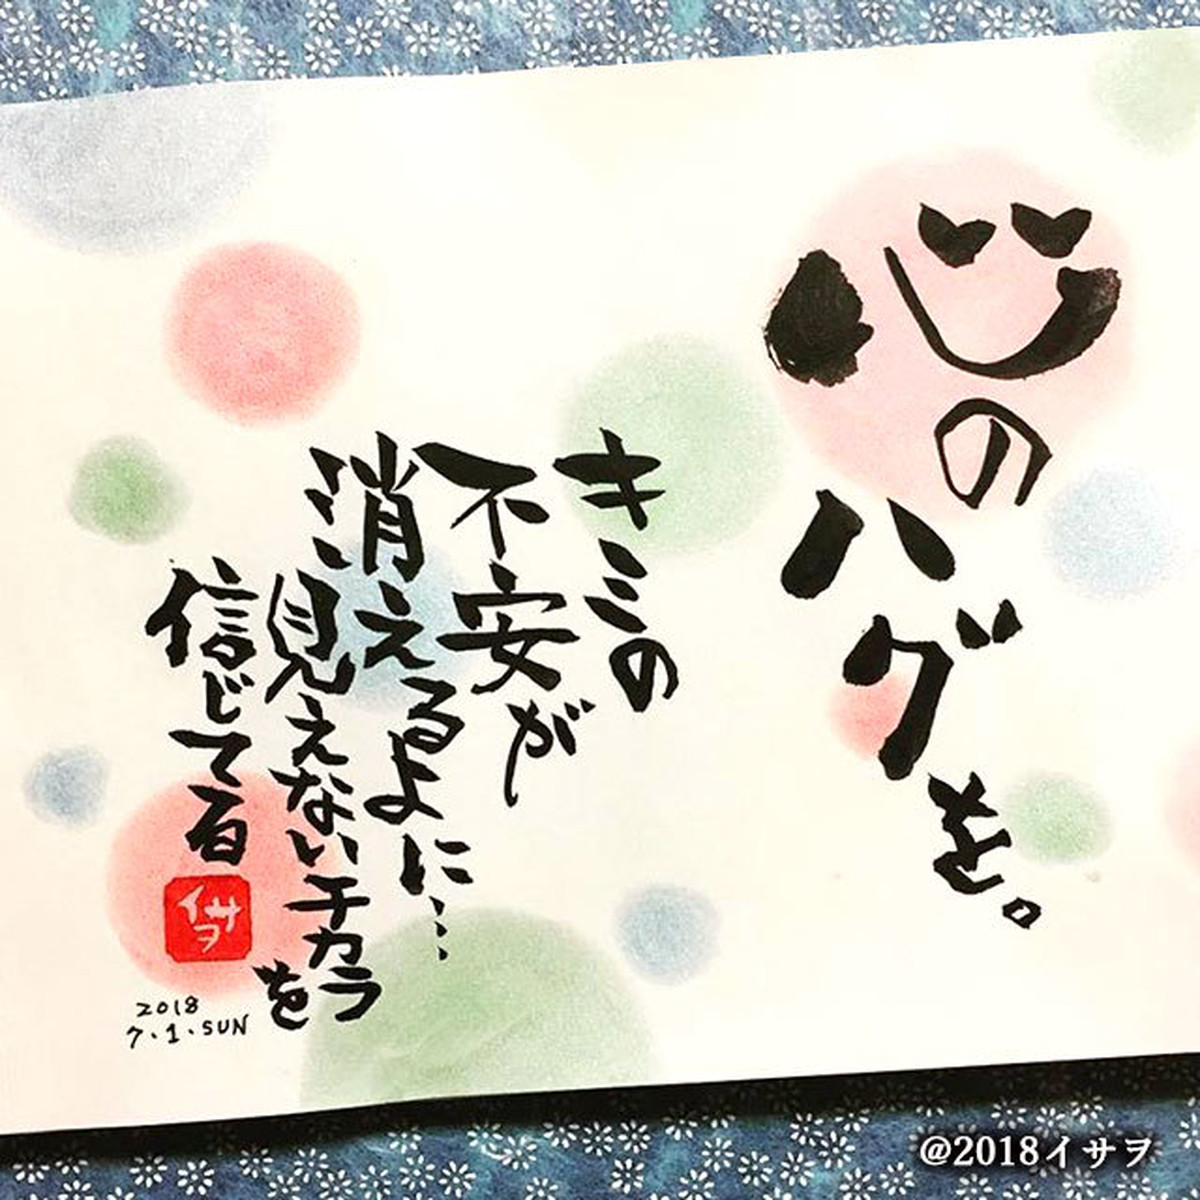 心のハグを。
キミの
不安が
消えるよに…
見えないチカラを
信じてる
イサヲ
2018
7.1.SUN
@2018イサヲ